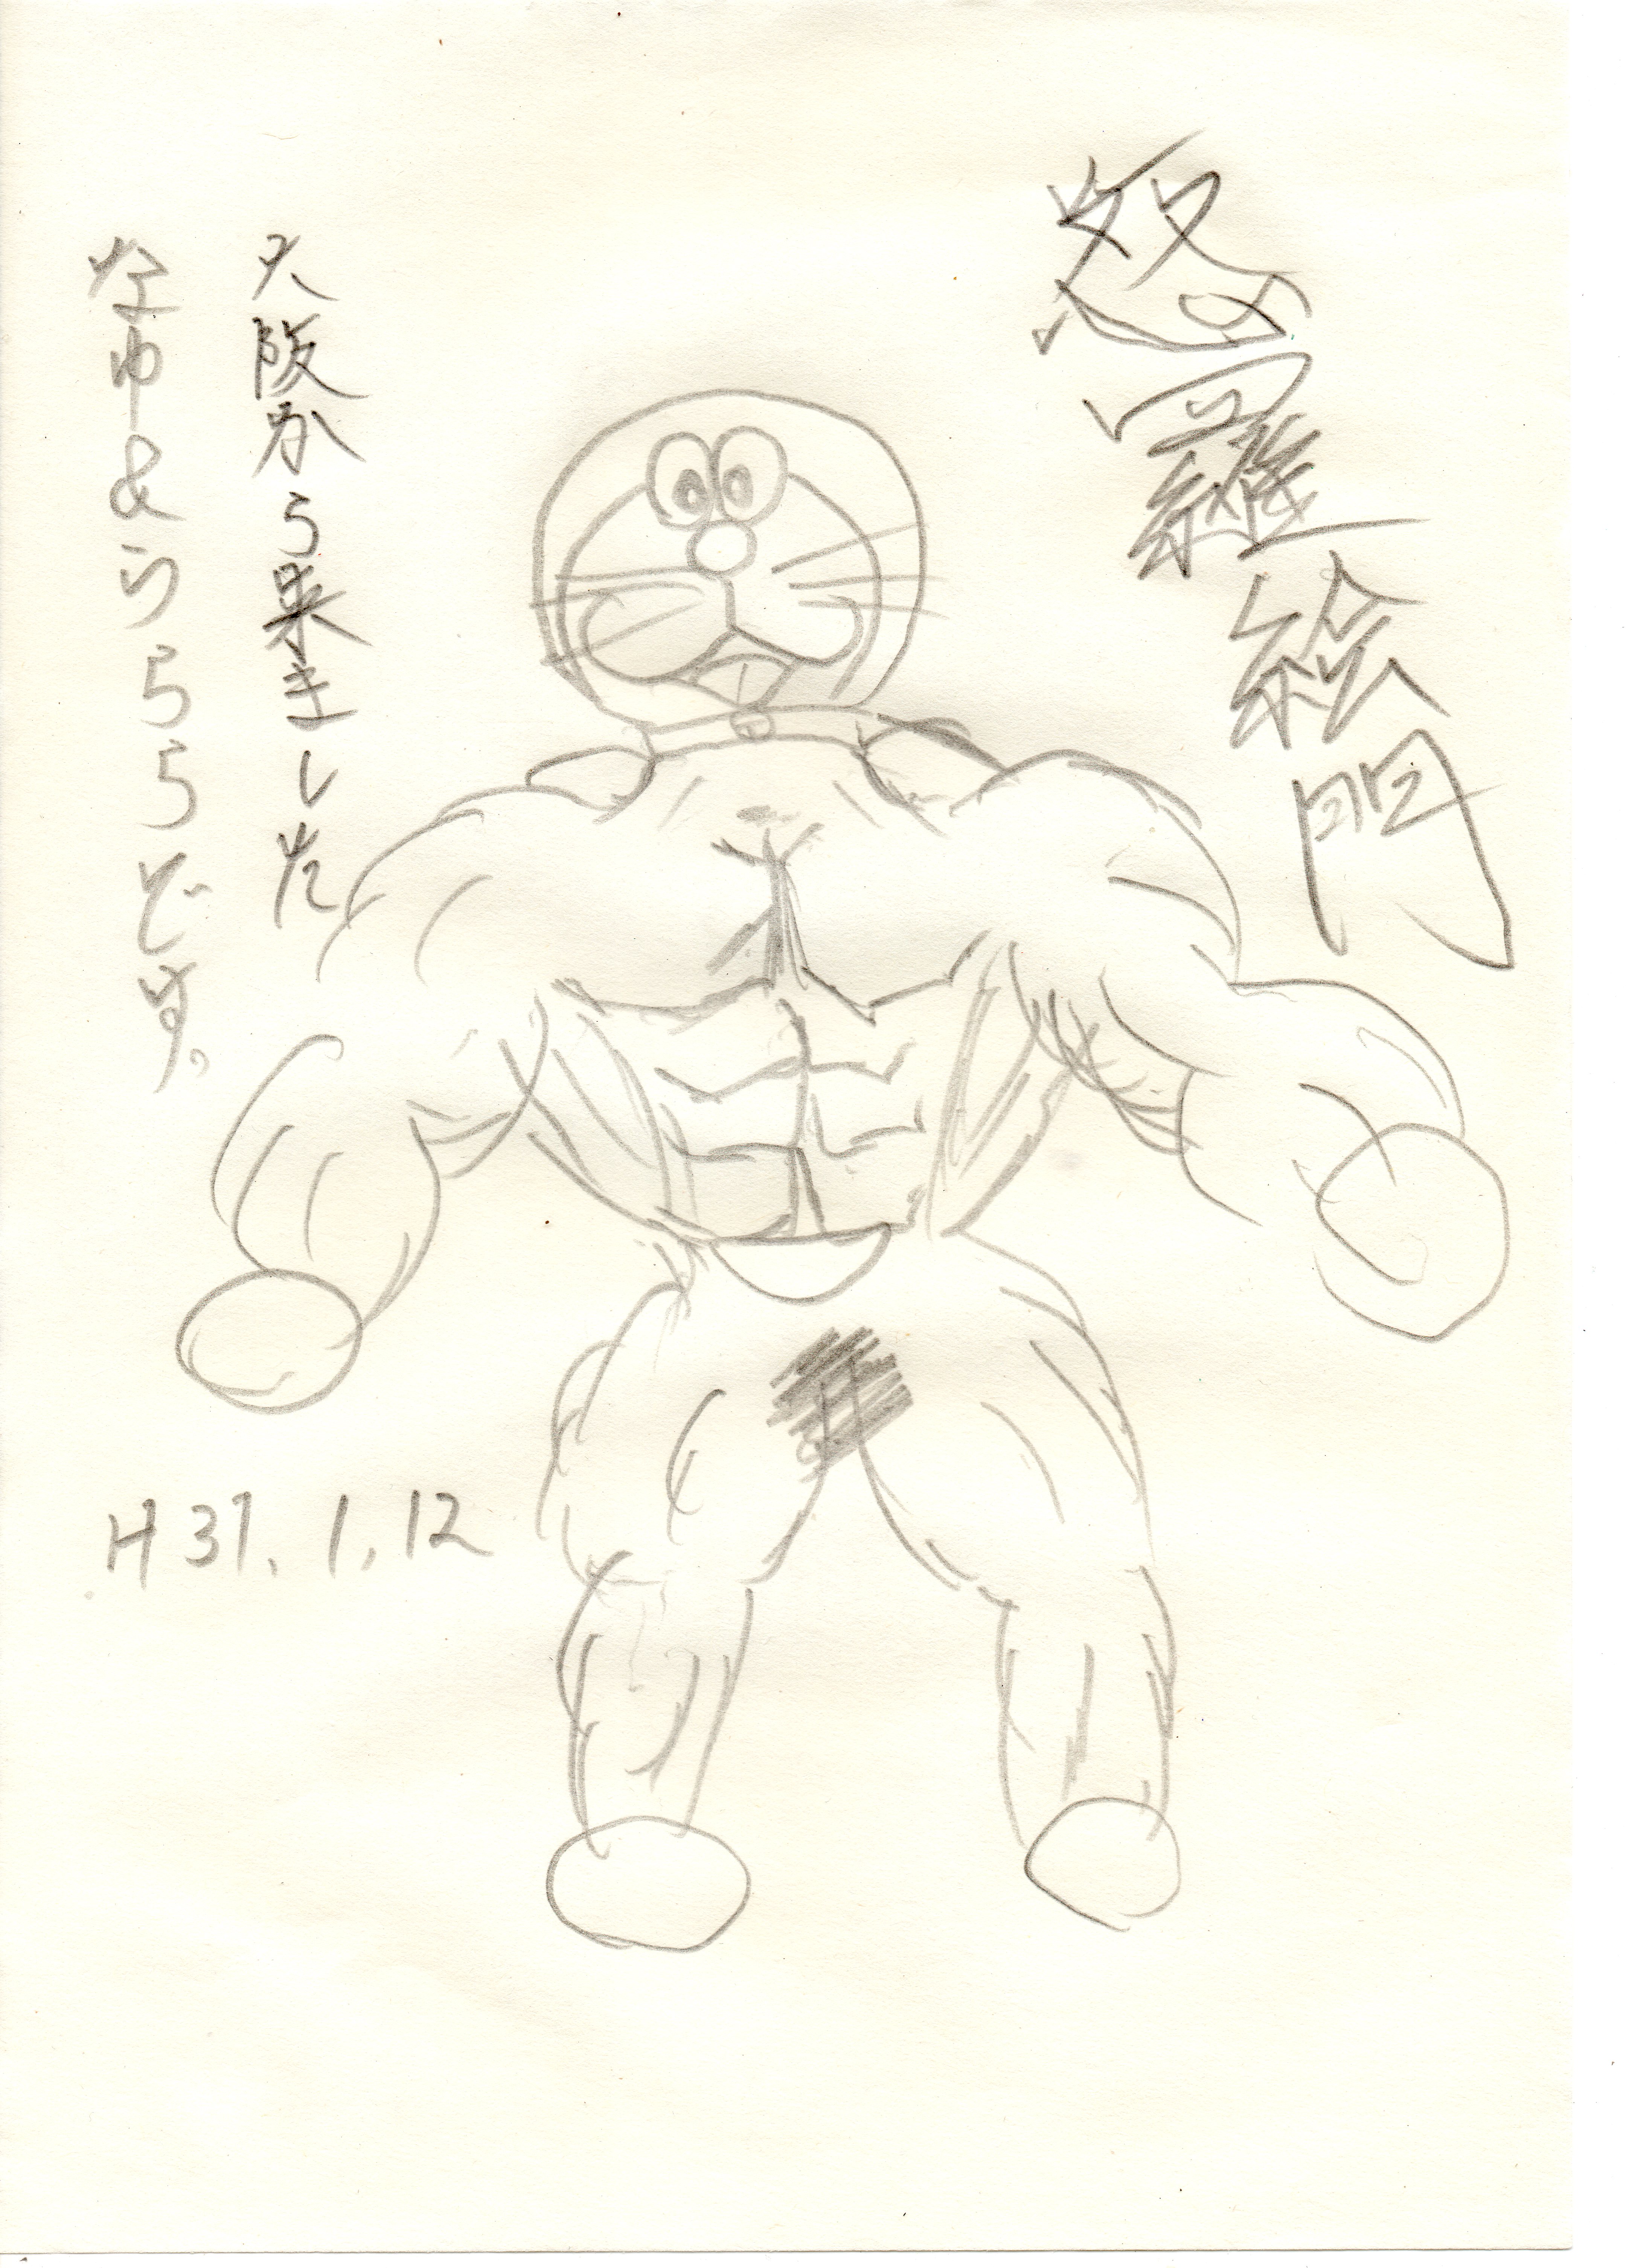 怒羅絵門
大阪から来ました
なゆ&うららです。
H31.1.12